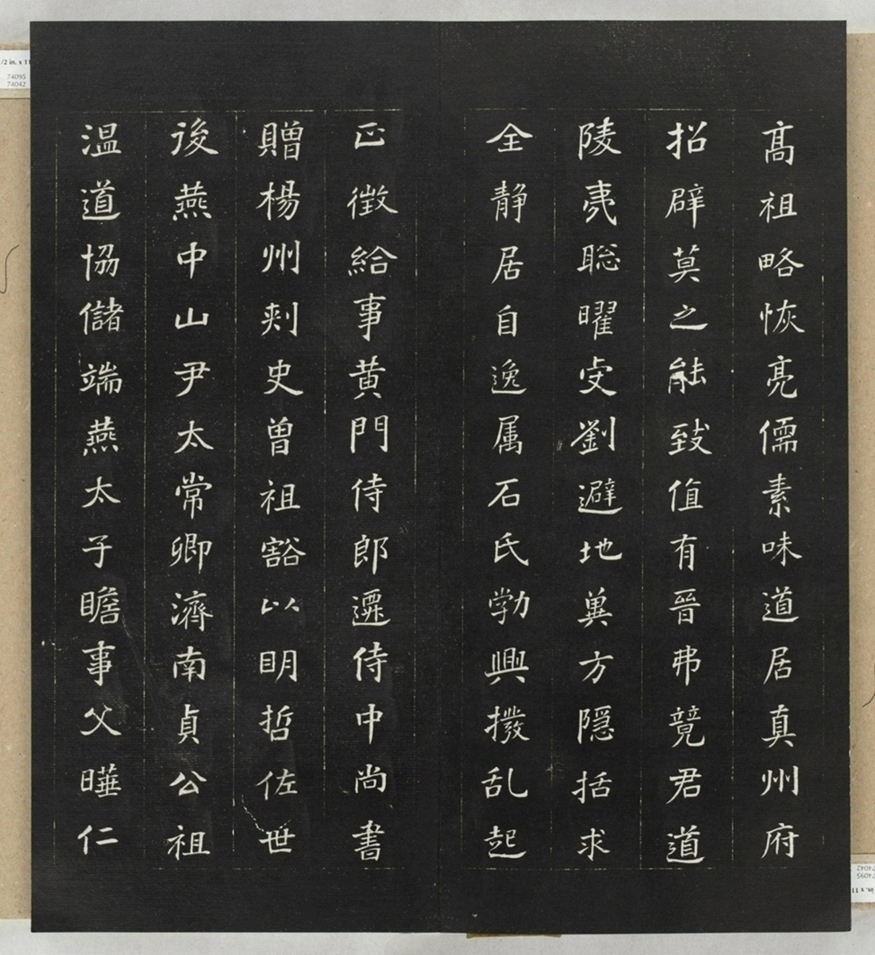 高祖略恢亮儒素味道居真州府
招辟莫之能致值有晉弗競君道
陵夷聡曜受劉避地冀方隠括求
全静居自逸属石氏勃興撥乱起
正徴給事黄門侍郎遷侍中尚書
贈楊州刺史曽祖豁以明哲佐世
後燕中山尹太常卿濟南貞公祖
温道協儲端燕太子瞻事父曄仁
/2 in. x 11
74095
74042